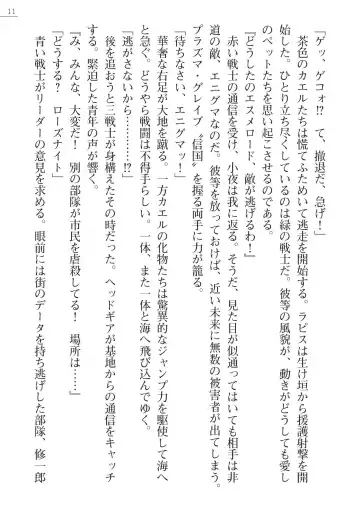 11
「ゲッ、ゲコォ!?　て、撤退だ、急げ！」
　茶色のカエルたちは慌てふためいて逃走を開始する。ラピスは生け垣から援護射撃を開
始した。ひとり立ち尽くしているのは緑の戦士だ。彼等の風貌が、動きがどうしても愛し
のペットたちを思い起こさせるのである。
「どうしたのエスメロード、敵が逃げるわ！」
　赤い戦士の通信を受け、小夜は我に返る。そうだ、見た目が似通ってはいても相手は非
道の敵、エニグマなのだ。彼等を放っておけば、近い未来に無数の被害者が出てしまう。
プラズマ・グレイブ〝信国〟を握る両手に力が籠る。
「待ちなさい、エニグマッ！」
　華奢な右足が大地を蹴る。一方カエルの化物たちは驚異的なジャンプ力を駆使して海へ
と急ぐ。どうやら戦闘は不得手らしい。一体、また一体と海へ飛び込んでゆく。
「逃がさないから……――!?」
　後を追おうと三戦士が身構えたその時だった。ヘッドギアが基地からの通信をキャッチ
する。緊迫した青年の声が響く。
『み、みんな、大変だ！　別の部隊が市民を虐殺してる！　場所は……』
「どうする？　ローズナイト」
　青い戦士がリーダーの意見を求める。眼前には街のデータを持ち逃げした部隊、修一郎